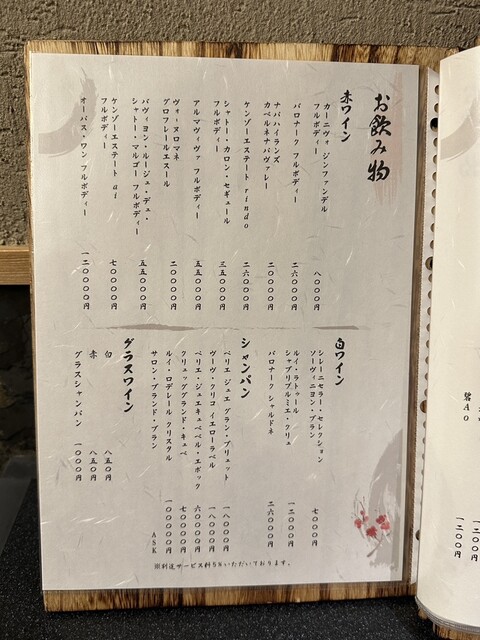 お飲み物
赤ワイン
カーニヴォ ジンファンデル
フルボディー 八〇〇〇円
バロナーク フルボディー 二六〇〇〇円
ナパハイランズ
カベルネナパヴァレー 二〇〇〇〇円
ケンゾーエステート rindo 二六〇〇〇円
シャトー・カロン・セギュール
フルボディー 三五〇〇〇円
アルマヴィヴァ フルボディー 五五〇〇〇円
ヴォーヌロマネ
グロフレールエスール 二〇〇〇〇円
パヴィヨン・ルージュ・デュ・
シャトー・マルゴー フルボディー 五五〇〇〇円
ケンゾーエステート ai
フルボディー 七〇〇〇〇円
オーパス・ワン フルボディー 一二〇〇〇〇円
白ワイン
シレーニセラー・セレクション
ソーヴィニヨン・ブラン 七〇〇〇円
ルイ・ラトゥール
シャブリプルミエ・クリュ 一二〇〇〇円
バロナーク シャルドネ 二六〇〇〇円
シャンパン
ベリエ ジュエ グラン・ブリュット 一八〇〇〇円
ヴーヴ・クリコ イエローラベル 一八〇〇〇円
ベリエ・ジュエキュベベル・エポック 六〇〇〇〇円
クリュッググランド・キュベ 七〇〇〇〇円
ルイ・ロデレール クリスタル 一〇〇〇〇〇円
サロン・ブランド・ブラン ASK
グラスワイン
白 八五〇円
赤 八五〇円
グラスシャンパン 一〇〇〇円
※別途サービス料5%いただいております。
碧Ao
一二〇〇円
一二〇〇円